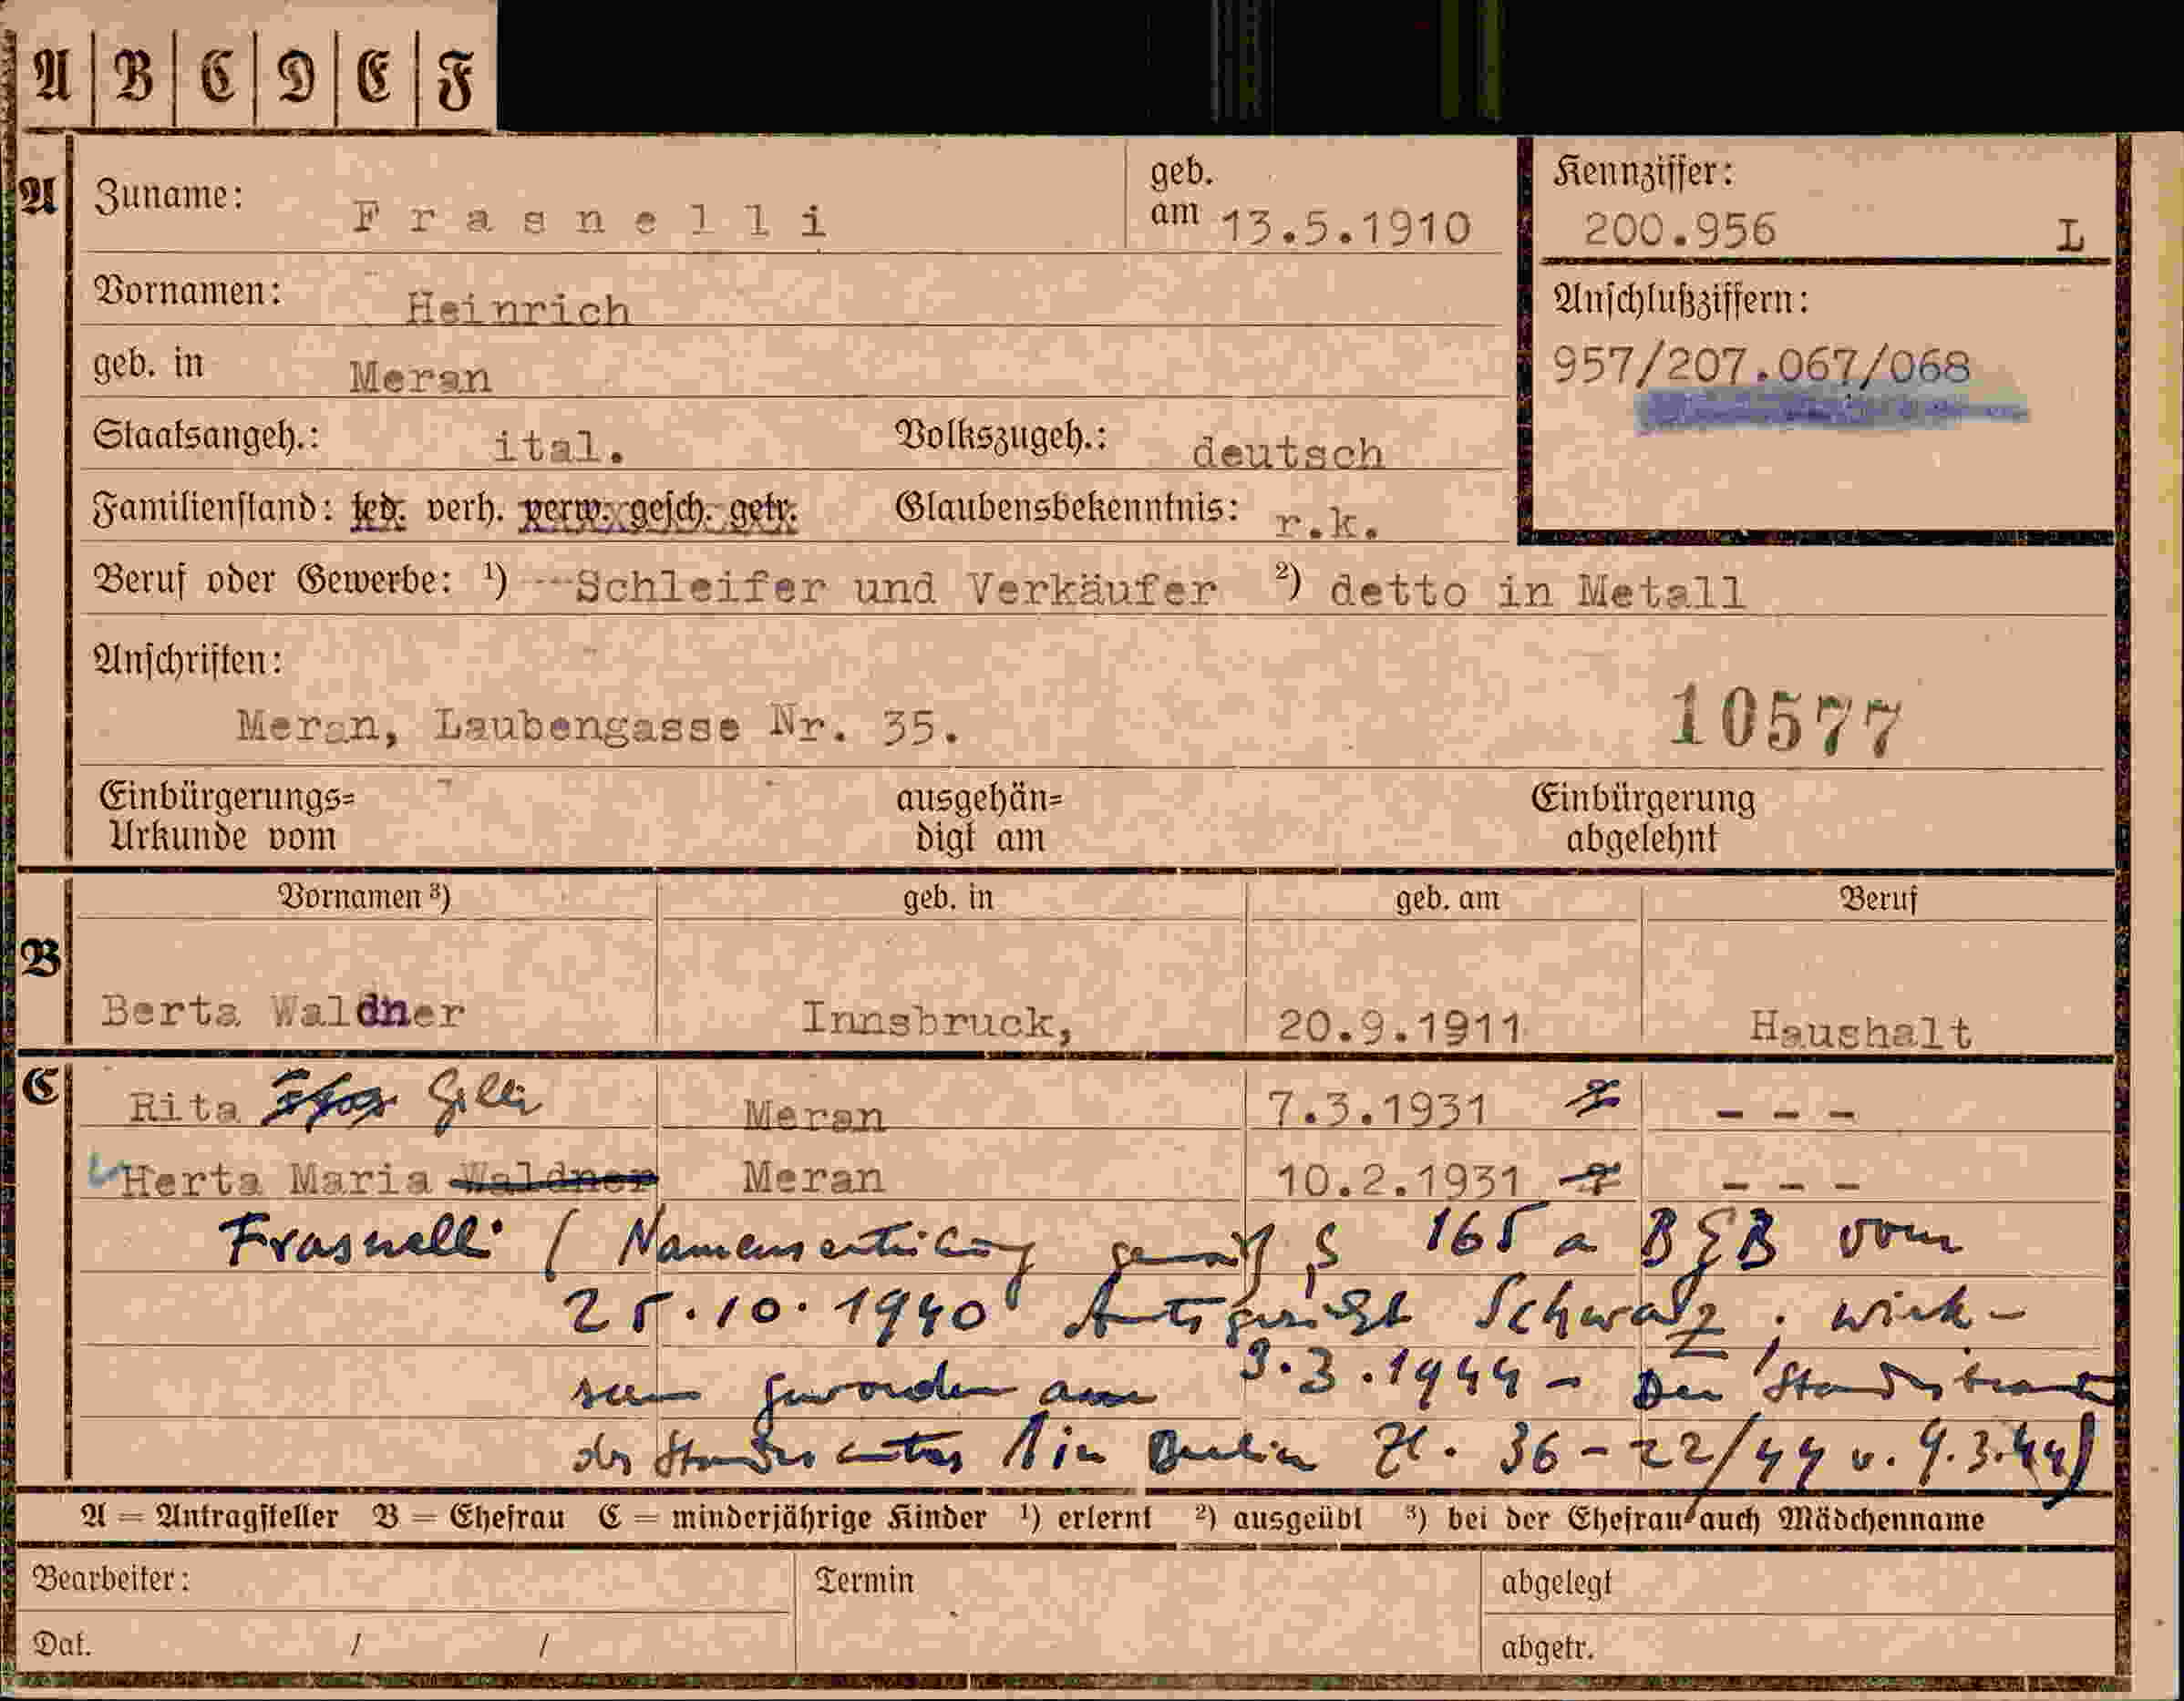 A B C D E F
A Zuname: Frasnelli geb. am 13.5.1910 Kennziffer: 200.956 L
Vornamen: Heinrich Anschlußziffern:
geb. in Meran 957/207.067/068
Staatsangeh.: ital. Volkszugeh.: deutsch
Familienstand: led. verh. verw. gesch. getr. Glaubensbekenntnis: r.k.
Beruf oder Gewerbe: ¹) Schleifer und Verkäufer ²) detto in Metall
Anschriften:
Meran, Laubengasse Nr. 35. 10577
Einbürgerungs= ausgehän= Einbürgerung
Urkunde vom digt am abgelehnt
Vornamen ³) geb. in geb. am Beruf
B
Berta Waldner Innsbruck, 20.9.1911 Haushalt
C Rita Gilli Meran 7.3.1931 - - -
Herta Maria Waldner Meran 10.2.1931 - - -
Frasnelli (Namenserteilung gemäß § 165 a BGB vom
25.10.1940 Amtsgericht Schwaz; wirk-
sam geworden am 3.3.1944 - Der Standesbeamte
des Standesamtes 1 in Berlin Zl. 36-22/44 v. 9.3.44)
A = Antragsteller B = Ehefrau C = minderjährige Kinder ¹) erlernt ²) ausgeübt ³) bei der Ehefrau auch Mädchenname
Bearbeiter: Termin abgelegt
Dat. / / abgetr.